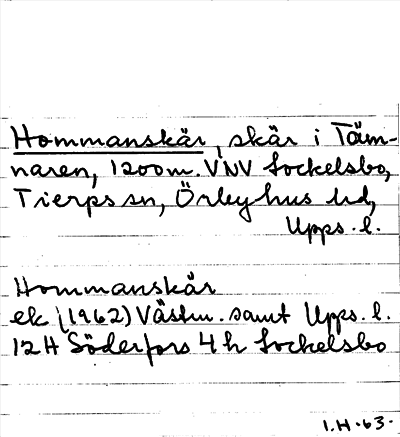 Hommanskär, skär i Täm-
naren, 1200 m. VNV Sockelsbo,
Tierps sn, Örbyhus hd,
Upps. l.
Hommanskär
ek (1962) Västm. samt Upps. l.
12 H Söderfors 4 h Sockelsbo
I.H. 63.